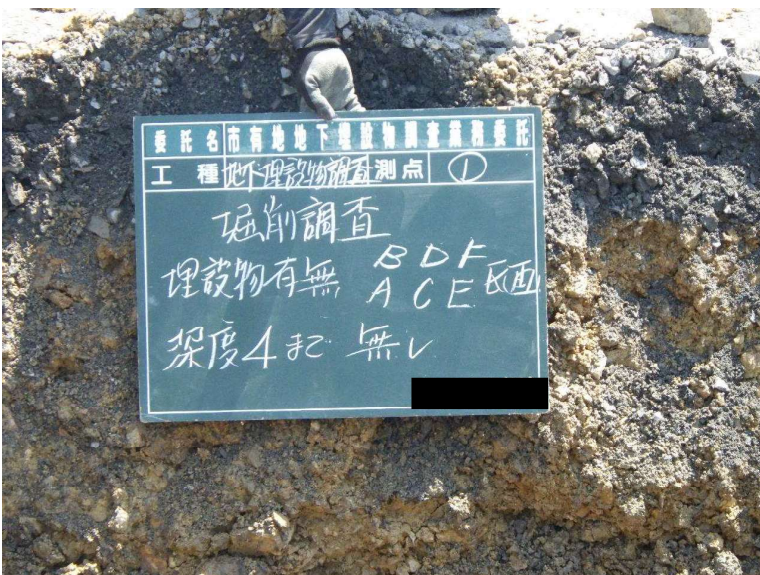 委託名 市有地地下埋設物調査業務委託
工種 地下埋設物調査 測点 ①
堀削調査
埋設物有無 BDF
ACE
深度4まで 無し